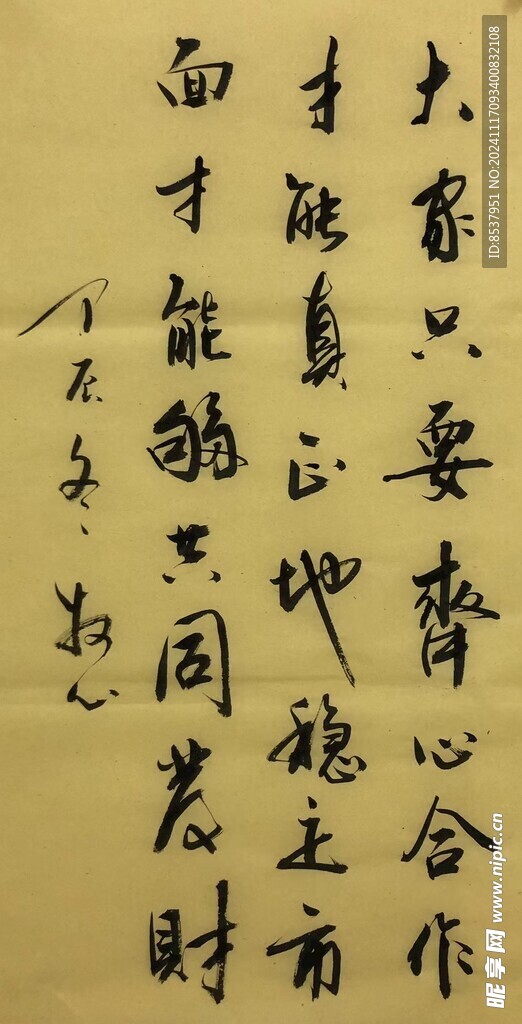 大家只要齊心合作
才能真正地稳定市
面才能够共同发財
丁辰冬牧心
ID:8537951 NO:20241117093400832108
昵享网 www.nipic.cn